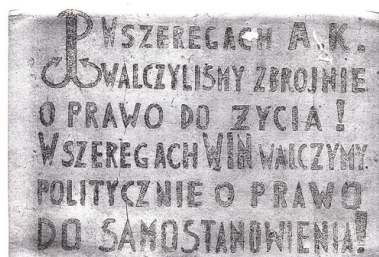 W SZEREGACH A.K.
WALCZYLIŚMY ZBROJNIE
O PRAWO DO ŻYCIA!
W SZEREGACH WIN WALCZYMY
POLITYCZNIE O PRAWO
DO SAMOSTANOWIENIA!